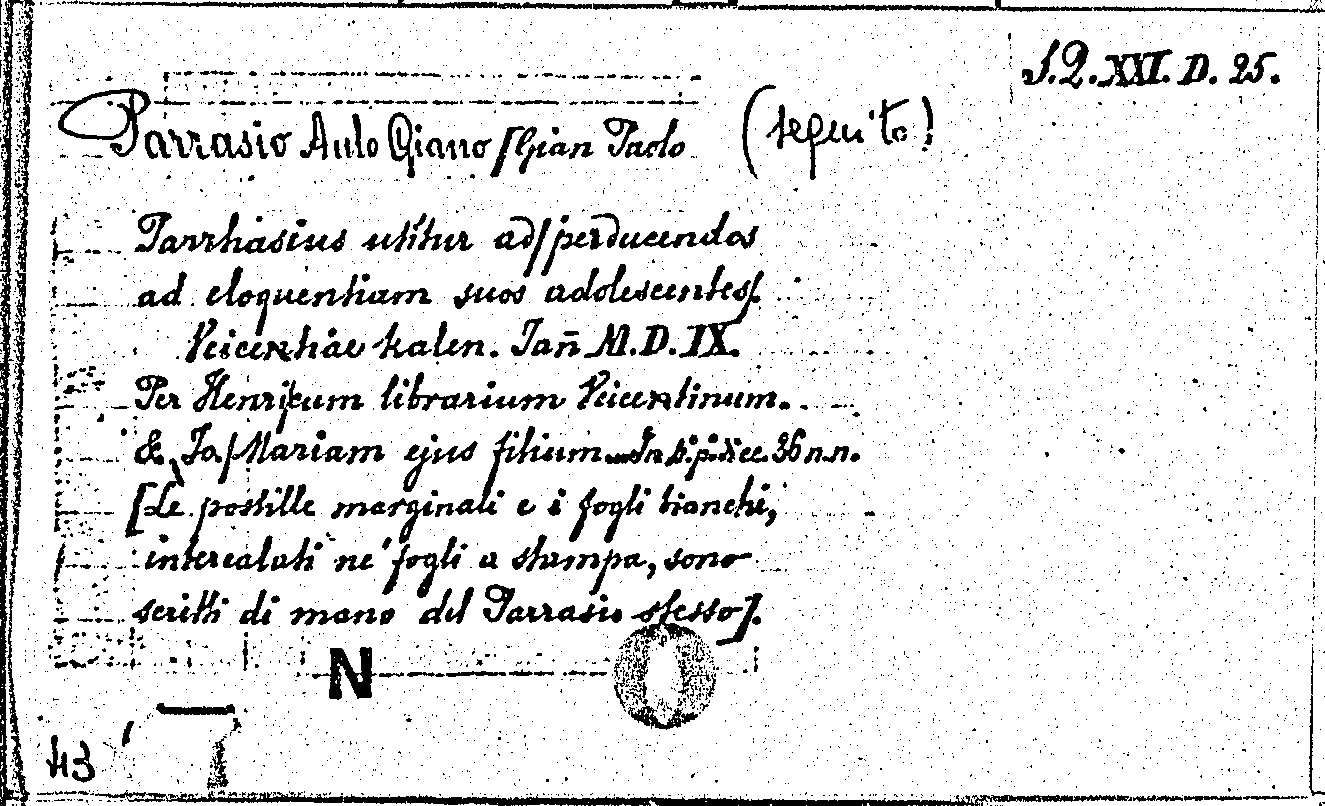 S.Q.XXI.D.25.
Parrasio Aulo Giano [Gian Paolo (seguito)
Parrhasius utitur ad/perducendos
ad eloquentiam suos adolescentes/.
Veicentiae kalen. Jan̄ M.D.IX.
Per Henricum librarium Veicentinum.
& Jo/Mariam ejus filium. In 36 n.n.
[Le postille marginali e i fogli bianchi,
intercalati ne' fogli a stampa, sono
scritti di mano del Parrasio stesso].
N
43